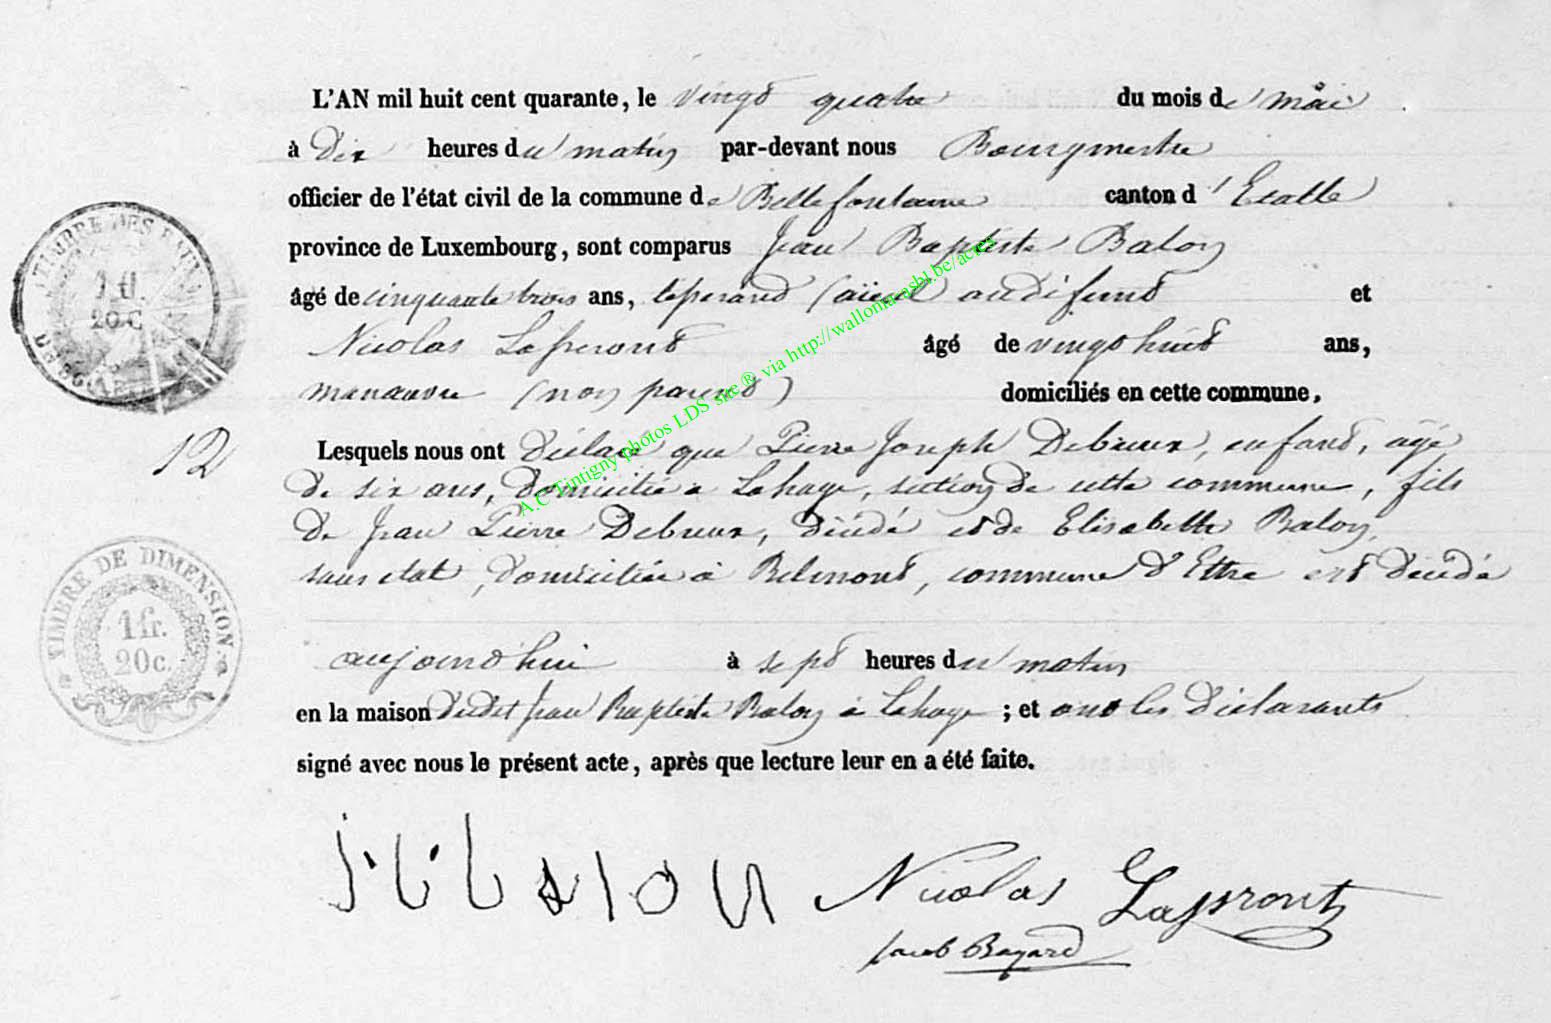 L'AN mil huit cent quarante, le vingt quatre du mois de mai
à dix heures du matin par-devant nous Bourgmestre
officier de l'état civil de la commune de Bellefontaine canton d'Etalle
province de Luxembourg, sont comparus Jean Baptiste Balon
âgé de cinquante trois ans, (aïeul) au défunt et
Nicolas Lafront âgé de vingt huit ans,
manœuvre (non parent) domiciliés en cette commune,
Lesquels nous ont déclaré que Pierre Joseph Debreux, enfant, âgé
de six ans, domicilié à Lahage, section de cette commune, fils
de Jean Pierre Debreux, décédé et de Elisabette Balon,
sans état, domiciliée à Belmont, commune d'Ettre est décédé
aujourd'hui à sept heures du matin
en la maison dudit Jean Baptiste Balon à Lahage ; et ont les déclarants
signé avec nous le présent acte, après que lecture leur en a été faite.
Nicolas
Jacob Bayard
12
TIMBRE DES
20 C
TIMBRE DE DIMENSION.
1 fr.
20c.
A.C Tintigny photos LDS site ® via http://wallonia-asbl.be/actes